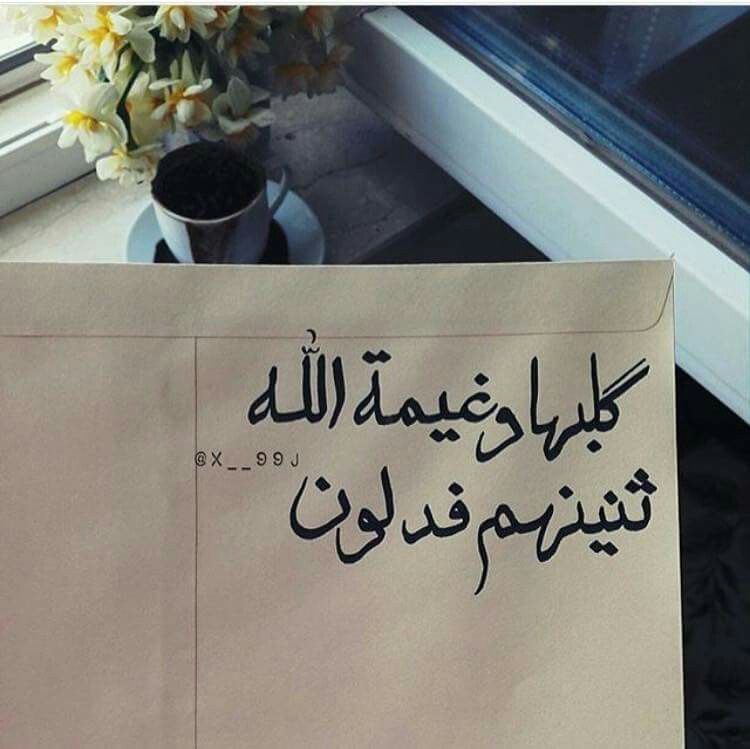 گلبها وغيمة الله
@X__99J
ثنينهم فد لون